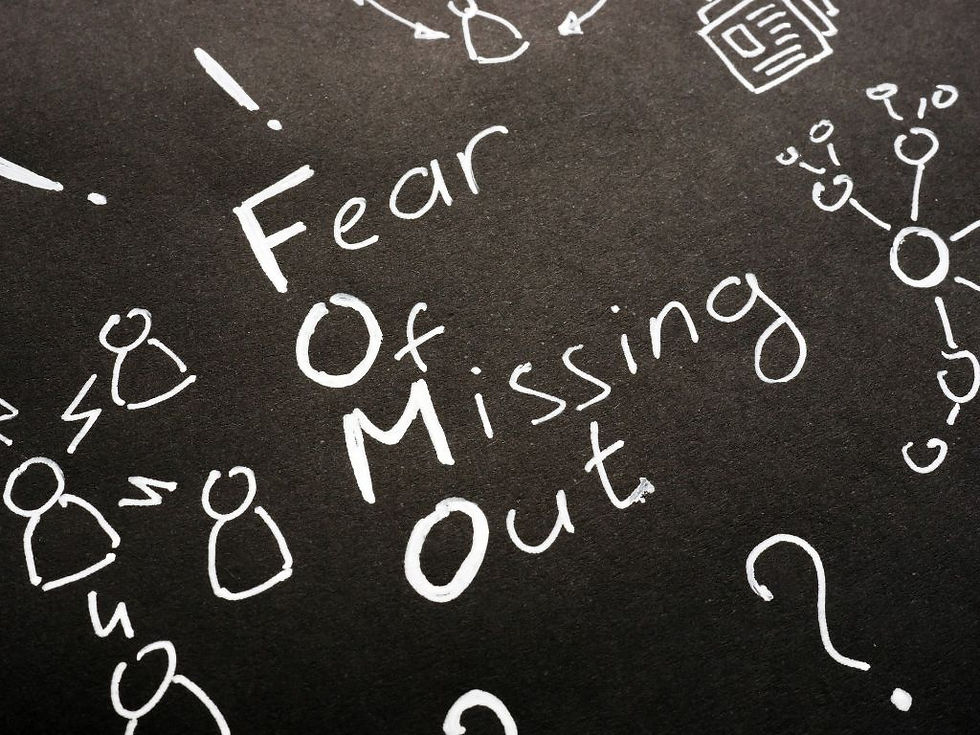 Fear
Of
Missing
Out